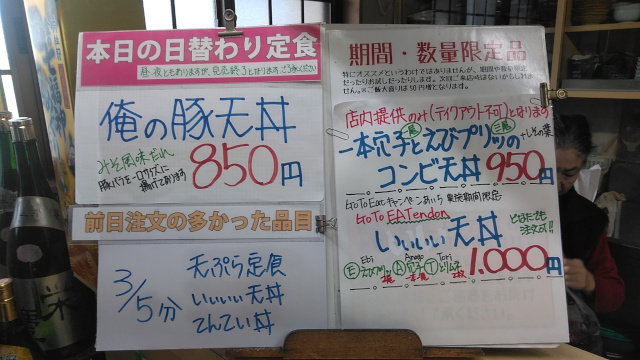 本日の日替わり定食
昼・夜ともありますが、完売終了となります。ご了承ください
俺の豚天丼
みそ風味だれ
豚バラを一口サイズに
揚げております
850円
前日注文の多かった品目
3/5分
天ぷら定食
いいいい天丼
てんてい丼
期間・数量限定品
特にオススメというわけではありませんが、期間や数量限定
だったりお試しだったりします。次回ご来店時はないかもしれま
せん。※ご飯大盛りは50円増となります。
店内提供のみ(テイクアウト不可)となります
一本穴子とえびプリッツの+しその葉
コンビ天丼 950円
GoToEatキャンペーンあいち 実施期間限定
GoTo EATendon
いいいい天丼
どなたでも
注文可!!
Ebi Anago Tori
1.000円
栄